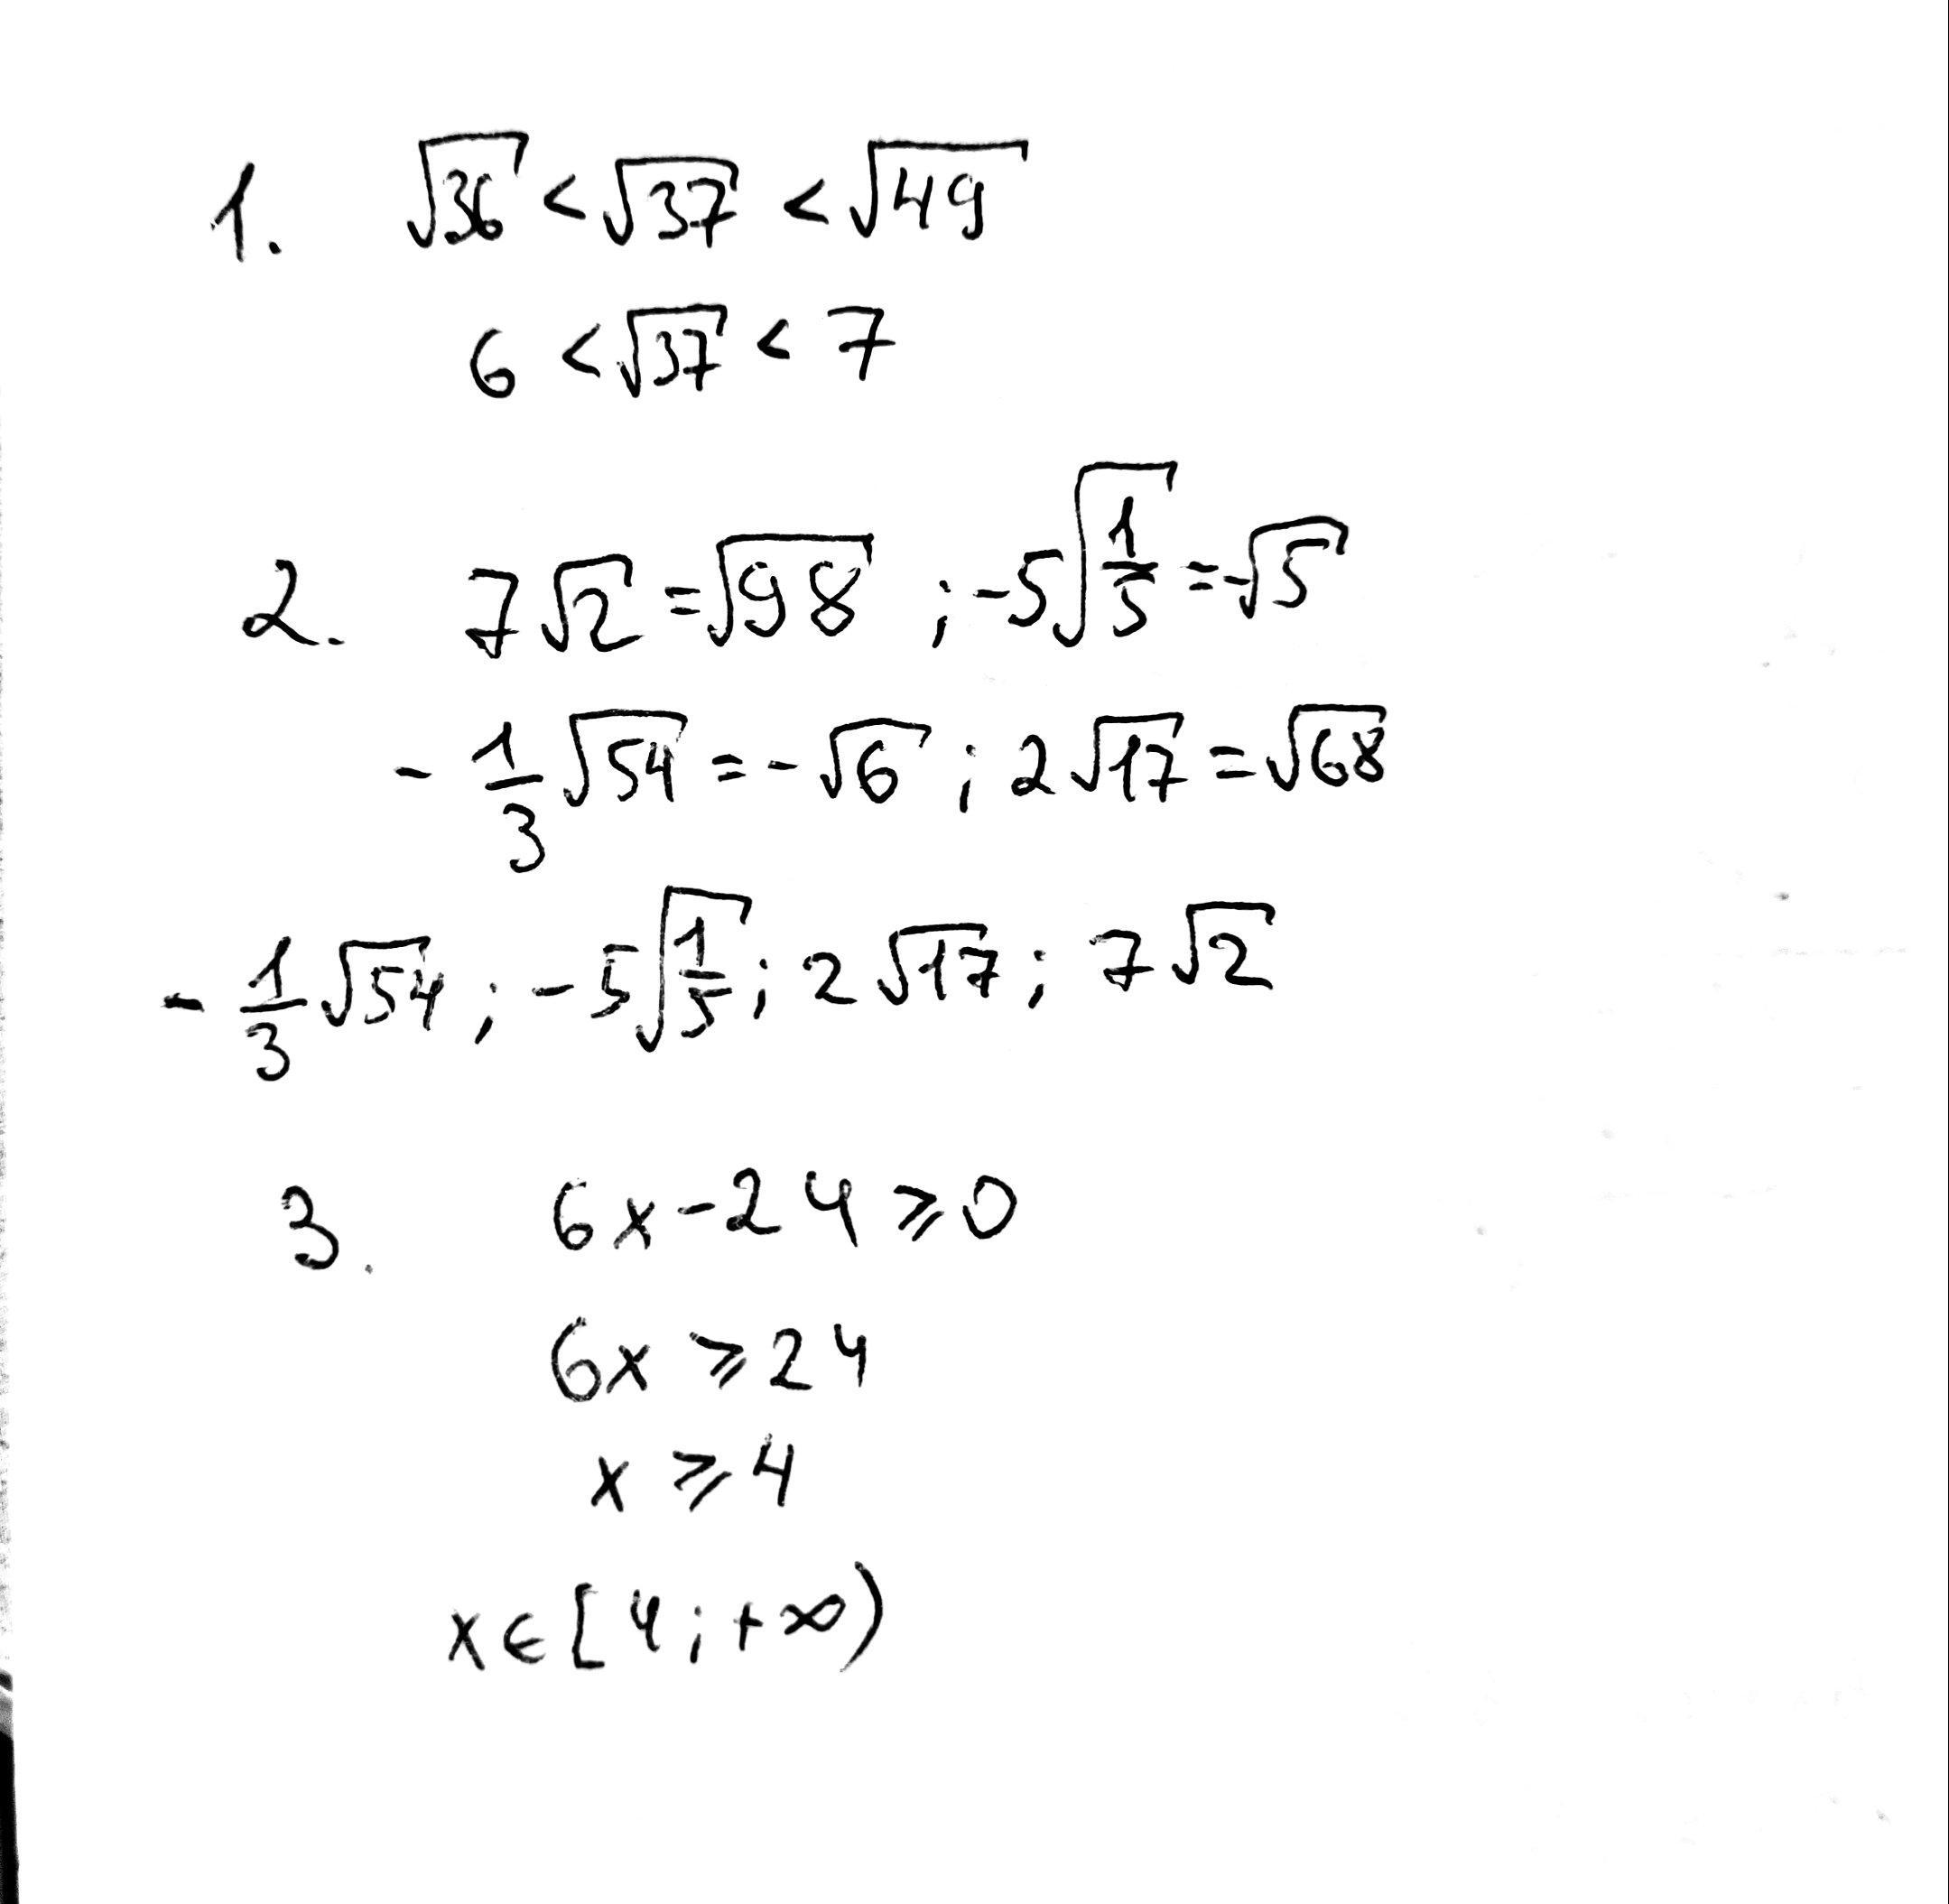 1. √36 < √37 < √49
6 < √37 < 7
2. 7√2 = √98 ; -5√(1/5) = -√5
- 1/3 √54 = -√6 ; 2√17 = √68
- 1/3 √54 ; -5√(1/5) ; 2√17 ; 7√2
3. 6x - 24 ⩾ 0
6x ⩾ 24
x ⩾ 4
x ∈ [4; +∞)